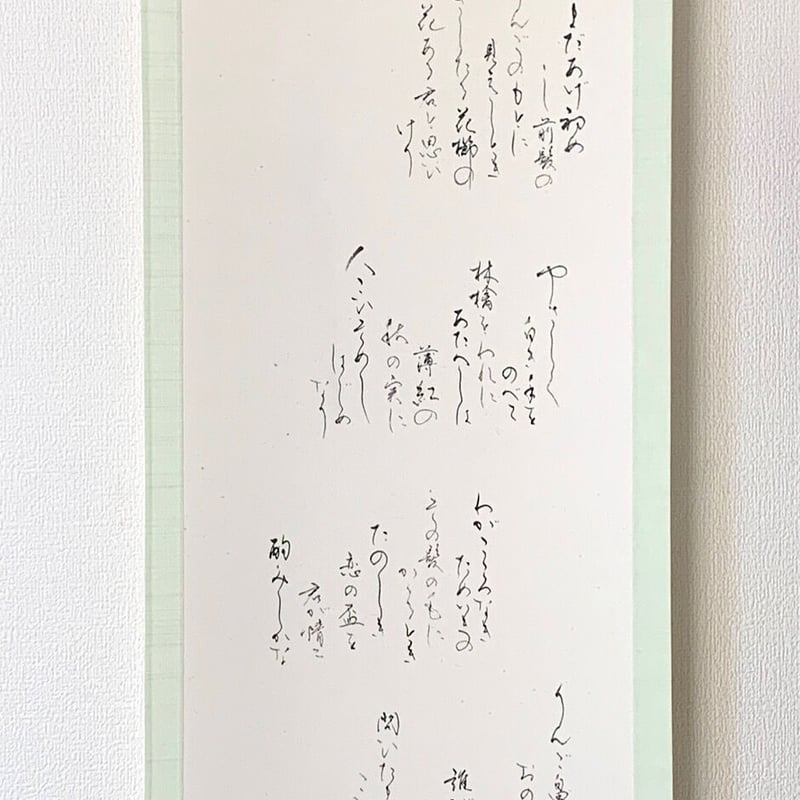 まだあげ初め
し前髪の
んごのもとに
見えしとき
さしたる花櫛の
花ある君と思ひ
けり
やさしく
白き手を
のべて
林檎をわれに
あたへしは
薄紅の
秋の実に
人こひそめし
はじめ
なり
わがこゝろなき
ためいきの
その髪の毛に
かゝるとき
たのしき
恋の盃を
君が情に
酌みしかな
りんご畠
おの
誰
問いた